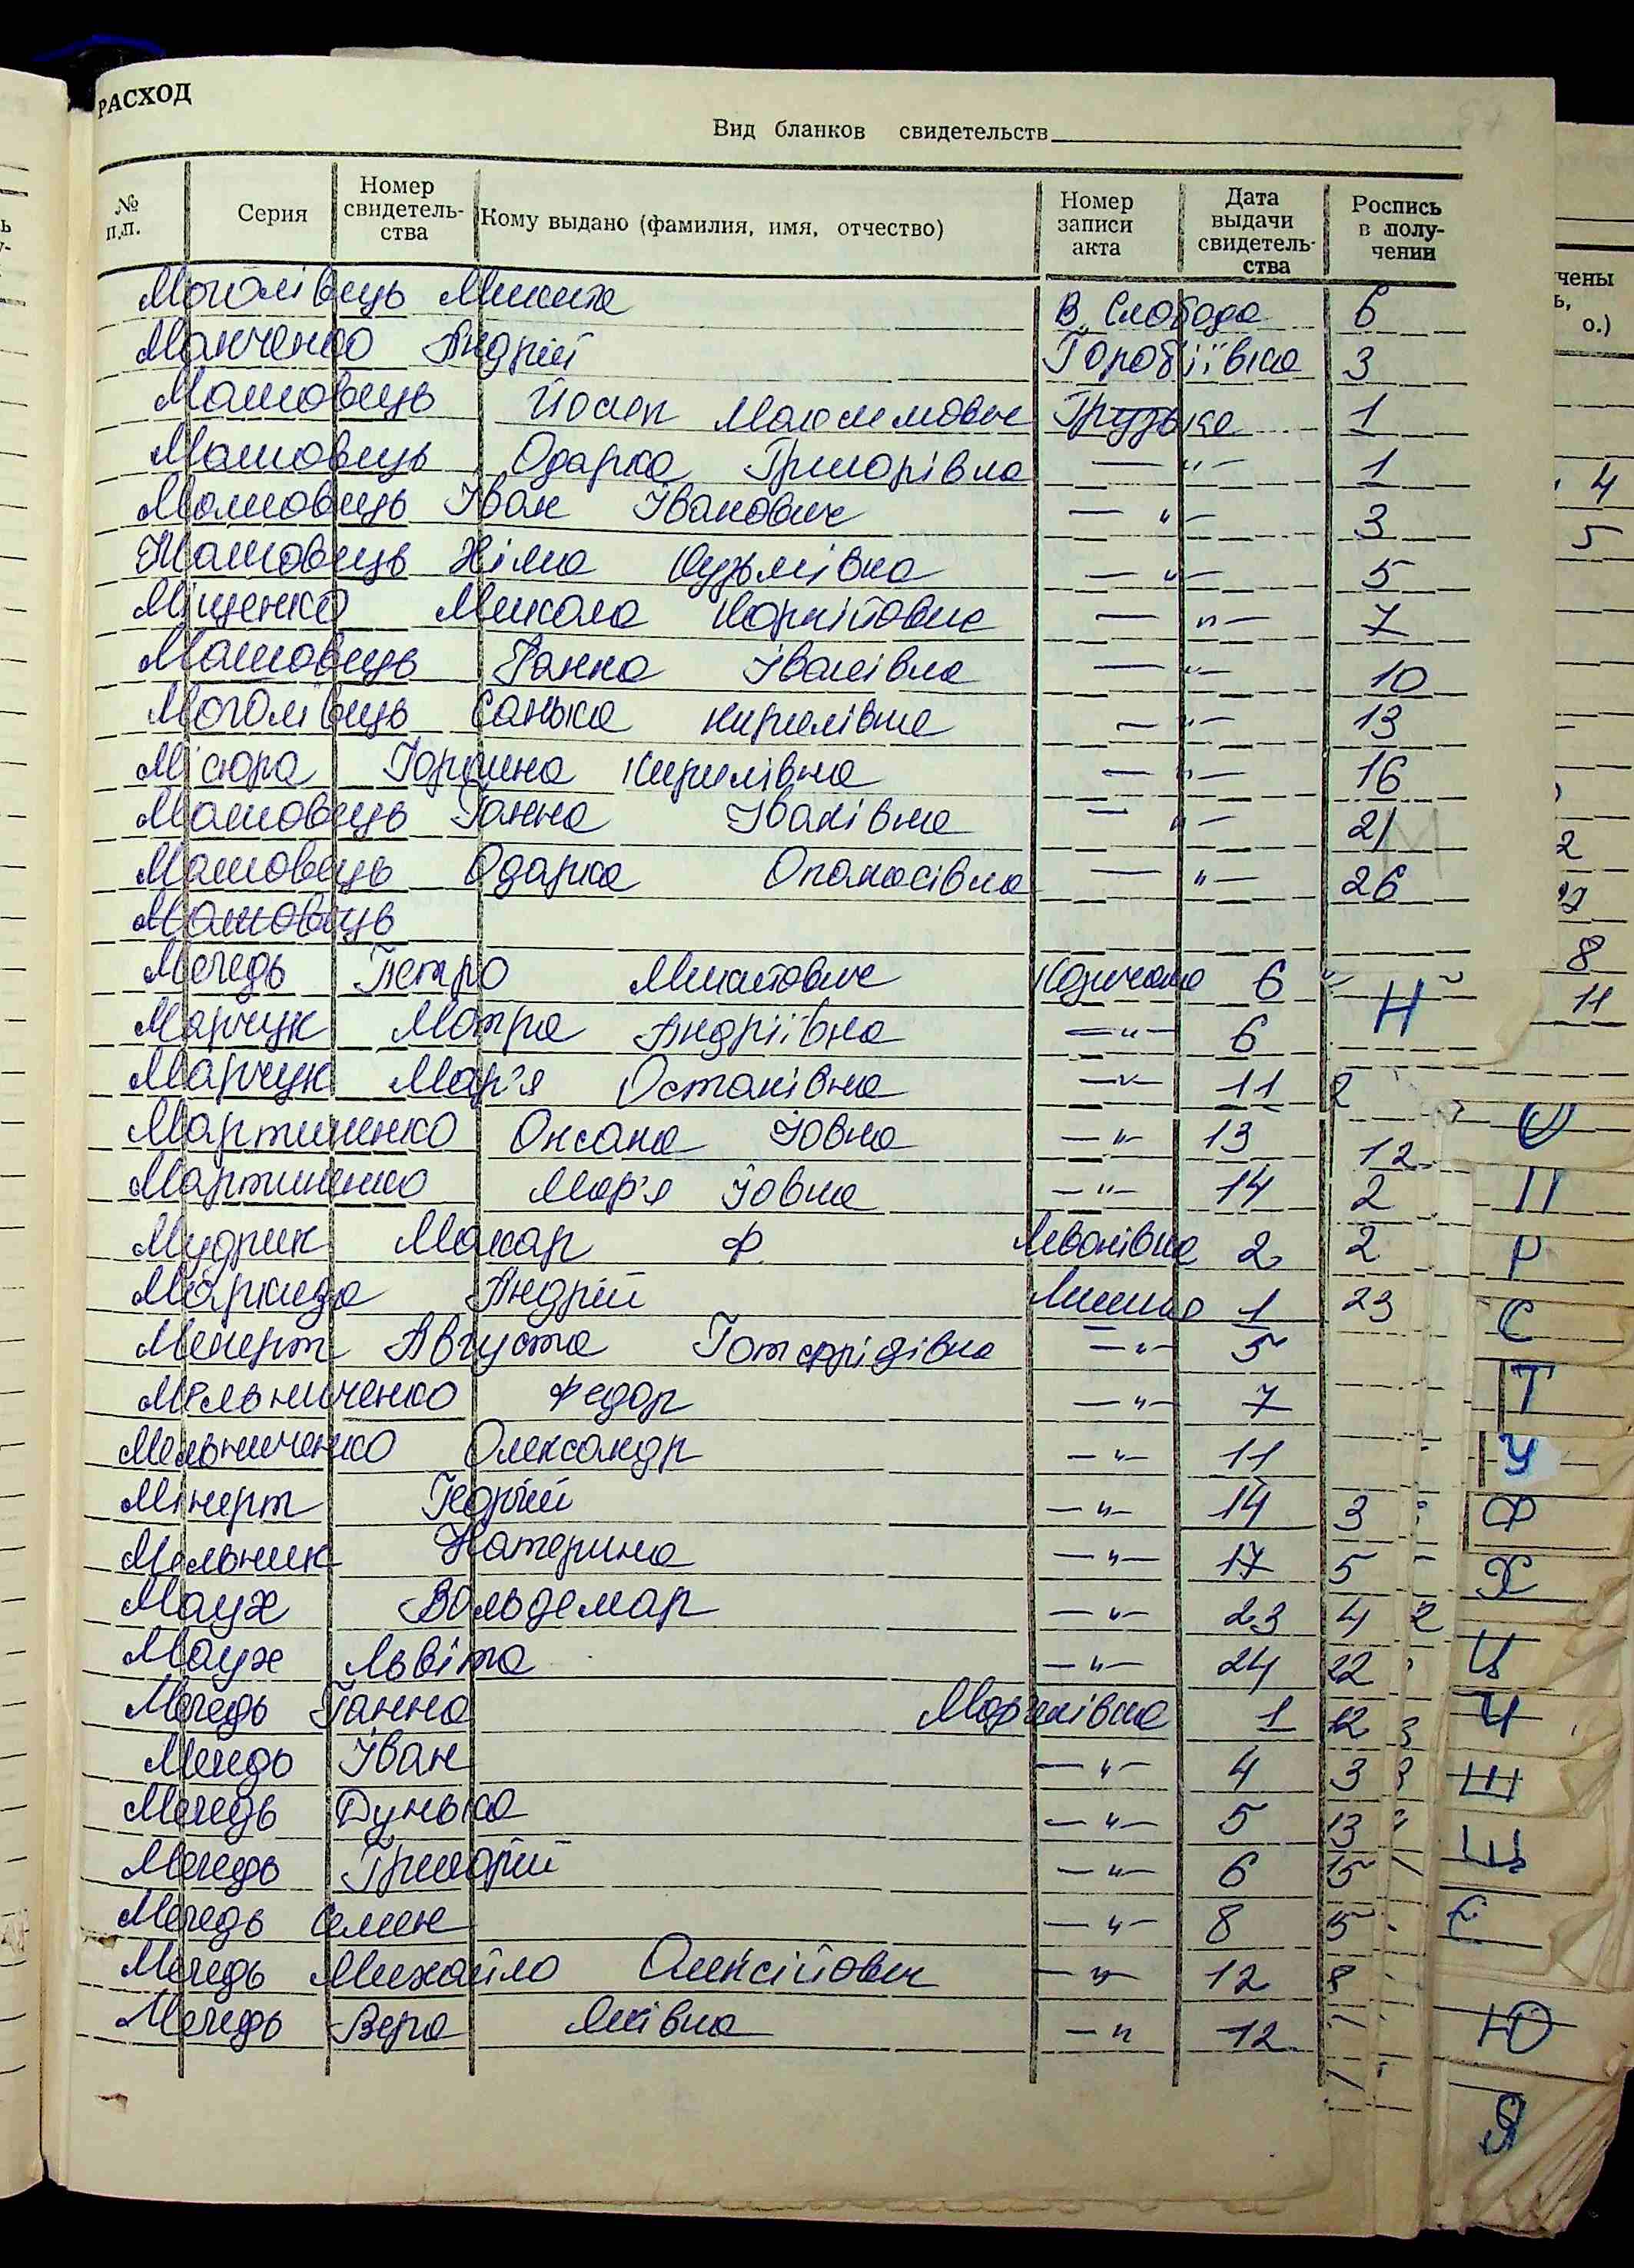 РАСХОД
Вид бланков свидетельств
№ п.п. Серия Номер свидетель-ства Кому выдано (фамилия, имя, отчество) Номер записи акта Дата выдачи свидетель-ства Роспись в полу-чении
Моголівець Микита В. Слобода 6
Манченко Андрій Горобіївка 3
Машовець Йосип Максимович Грузьке 1
Машовець Одарка Григорівна —"— 1
Машовець Іван Іванович —"— 3
Машовець Хіма Кузьмівна —"— 5
Міщенко Микола Корнійович —"— 7
Машовець Ганна Іванівна —"— 10
Моголівець Санька Кирилівна —"— 13
Місюра Горпина Кирилівна —"— 16
Машовець Ганна Іванівна —"— 21
Машовець Одарка Опанасівна —"— 26
Машовець
Мегедь Петро 6
Марчук Мотря Андріївна —"— 6
Марчук Мар'я Остапівна —"— 11
Мартиненко Оксана Іовна —"— 13
Мартиненко Мар'я Іовна —"— 14
Мудрик Макар Ф. Леванівка 2
Андрій 1
Менерт Августа Готфрідівна —"— 5
Мельниченко Федор —"— 7
Мельниченко Олександр —"— 11
Мінерт Георгій —"— 14
Мельник Катерина —"— 17
Маух Вольдемар —"— 23
Маух Львіта —"— 24
Мегедь Ганна Мар'янівка 1
Мегедь Іван —"— 4
Мегедь Дунька —"— 5
Мегедь Григорій —"— 6
Мегедь Семен —"— 8
Мегедь Михайло Олексійович —"— 12
Мегедь Вера Яківна —"— 12
чены
ь,
о.)
4
5
2
8
11
М
Н
О
П
Р
С
Т
У
Ф
Х
Ц
Ч
Ш
Щ
Є
Ю
Я